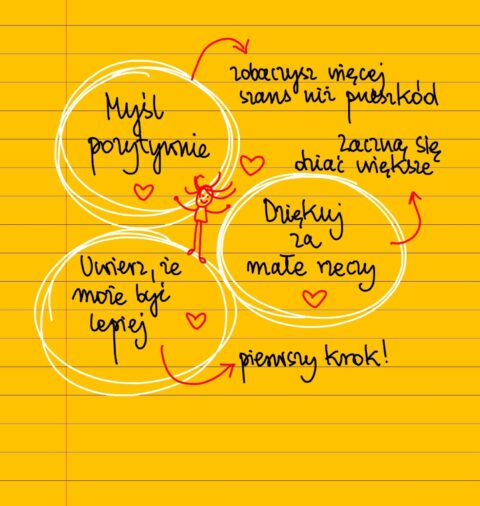 Myśl
pozytywnie
zobaczysz więcej
szans niż przeszkód
Dziękuj
za
małe rzeczy
zaczną się
dziać większe
Uwierz, że
może być
lepiej
pierwszy krok!